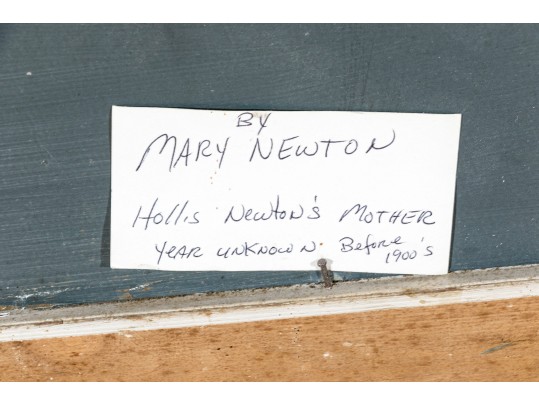 BY
MARY NEWTON
Hollis Newton's MOTHER
YEAR UNKNOWN. Before
1900's